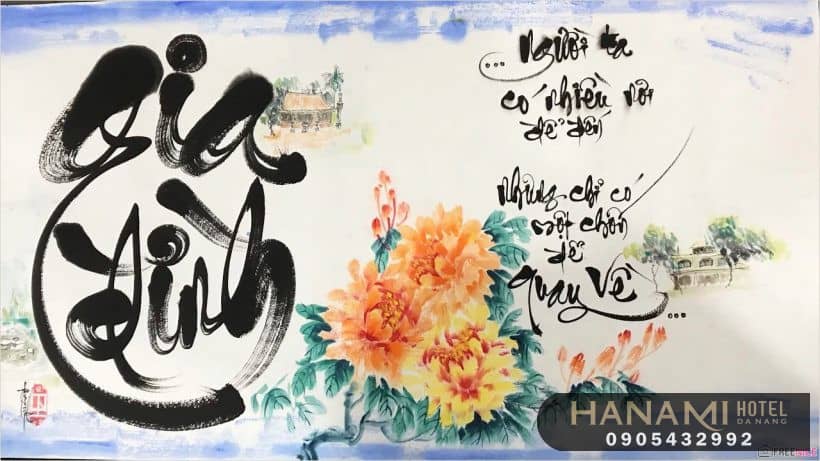 Gia
đình
... người ta
có nhiều nơi
để đến
nhưng chỉ có
một chốn
để
quay về
...
HANAMI HOTEL
DANANG
0905432992